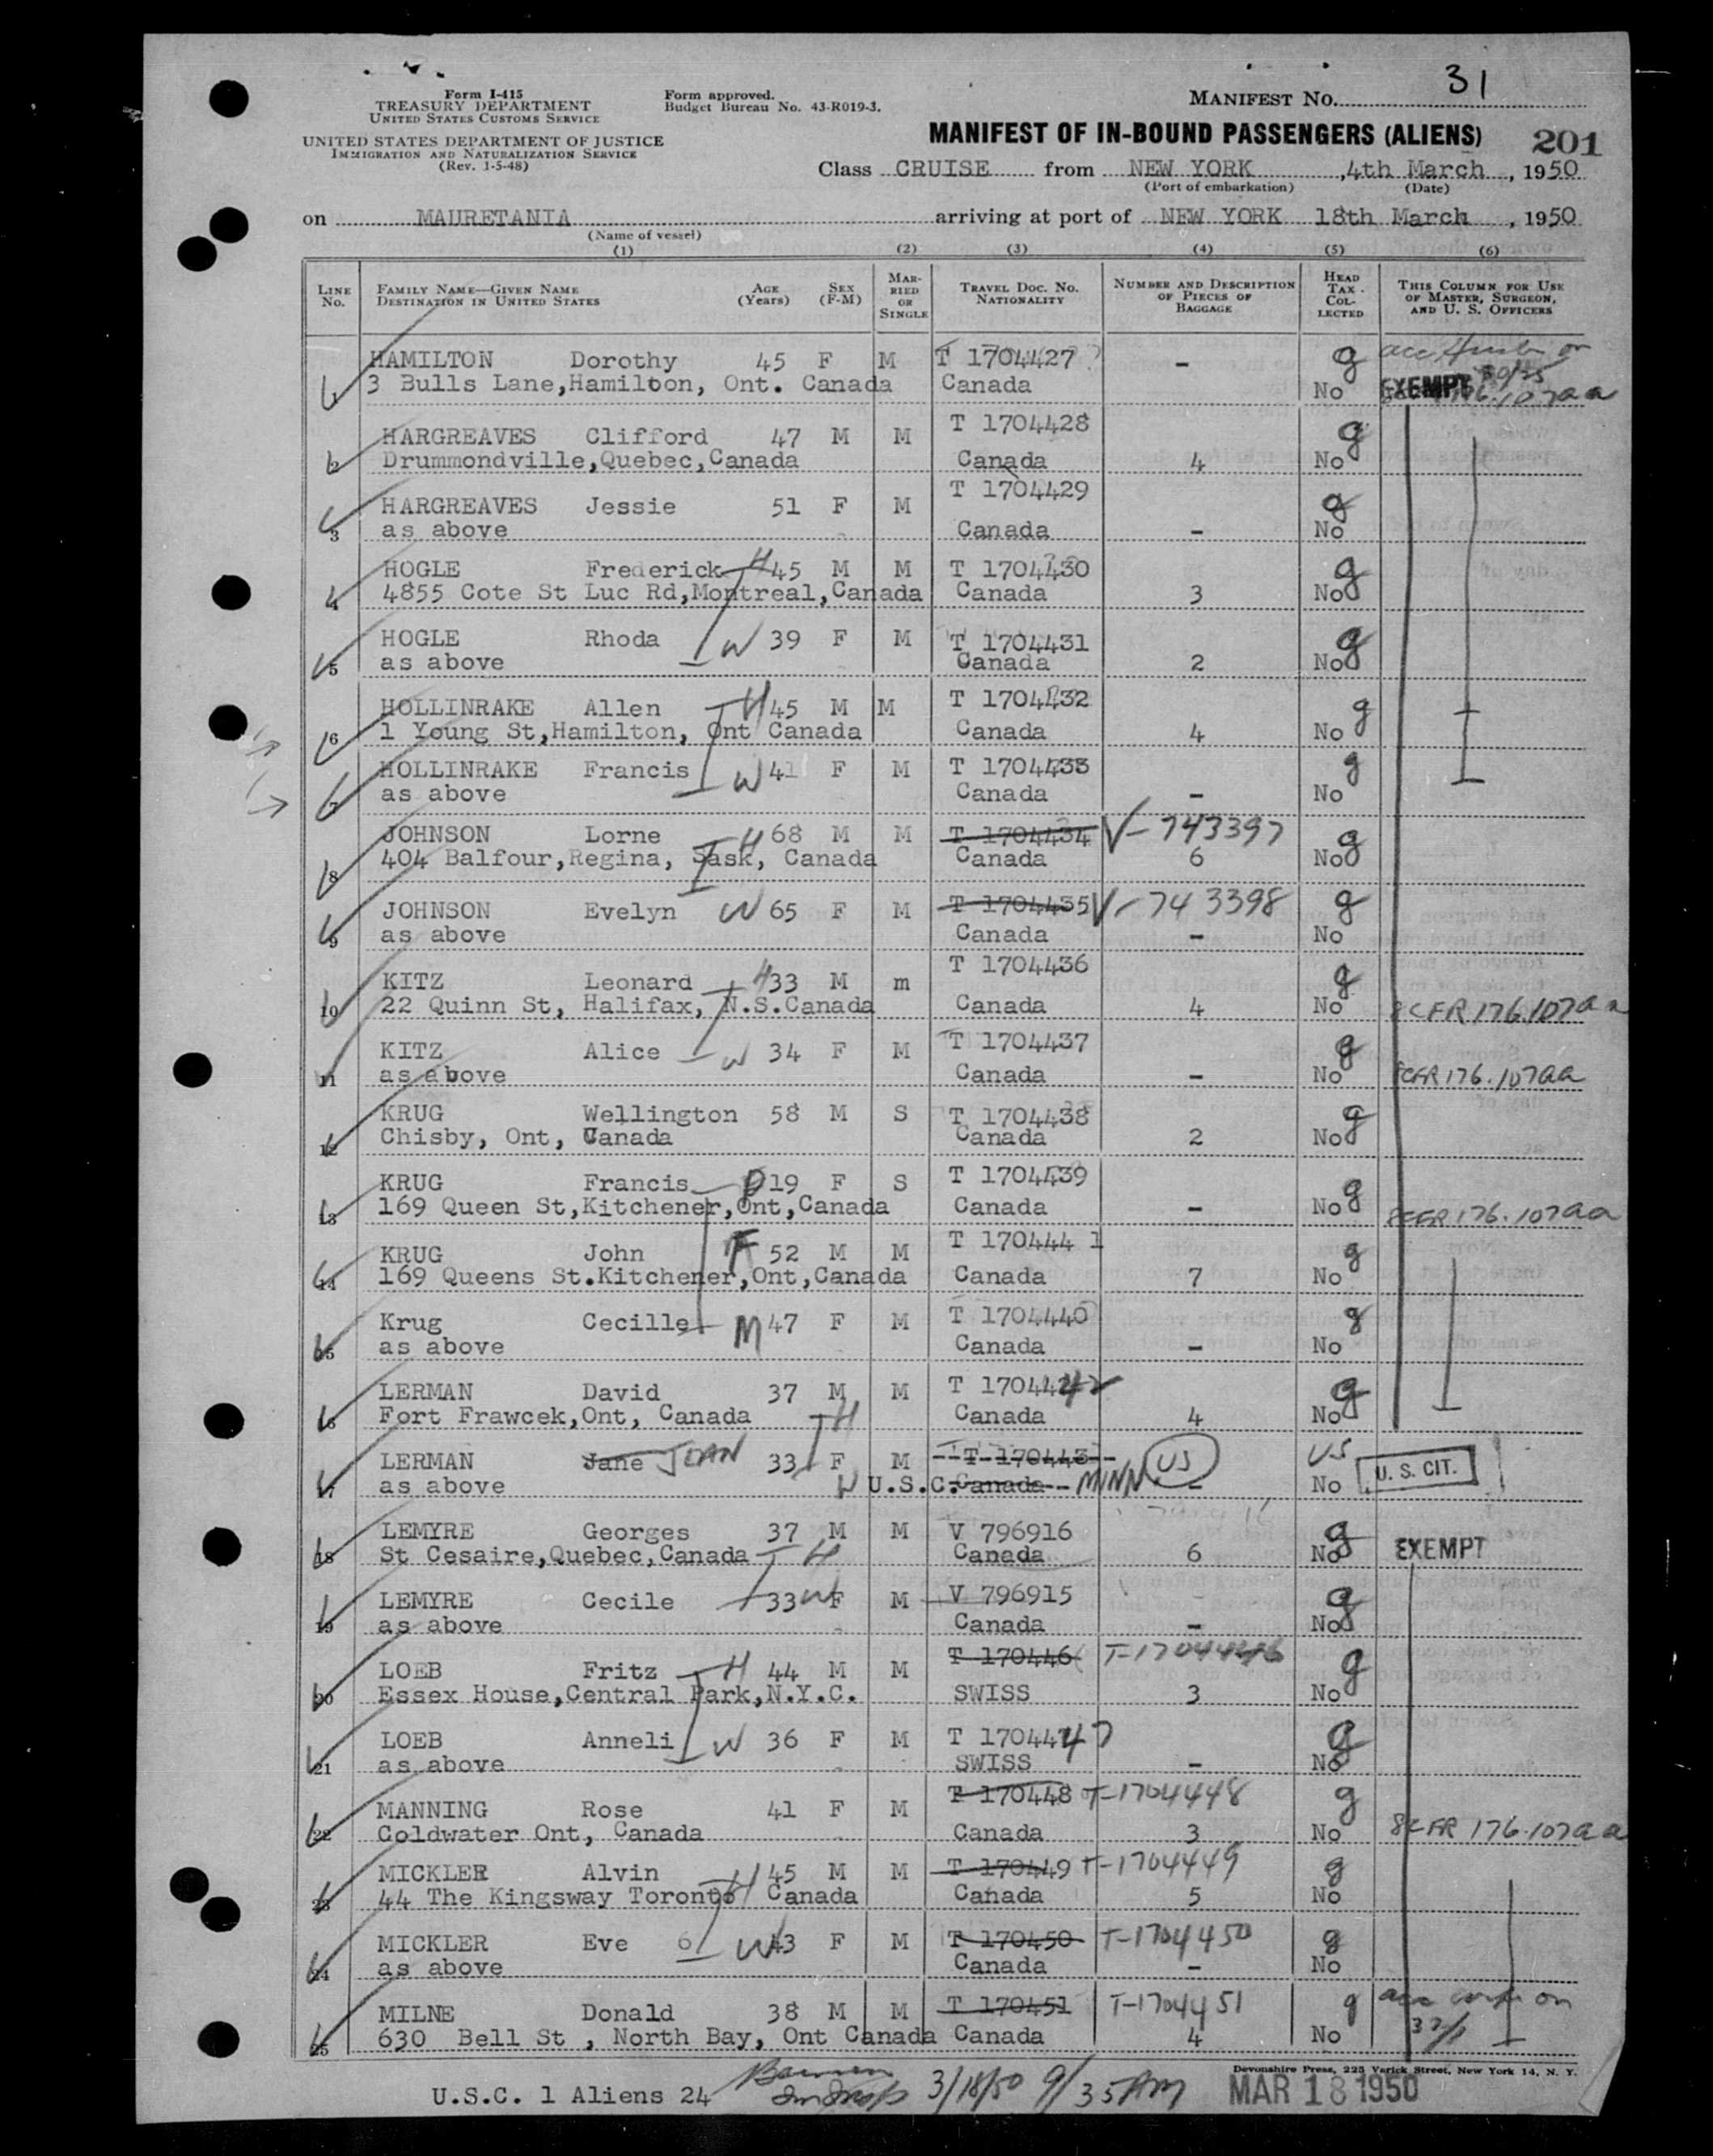 31
Form I-415
TREASURY DEPARTMENT
UNITED STATES CUSTOMS SERVICE
UNITED STATES DEPARTMENT OF JUSTICE
IMMIGRATION AND NATURALIZATION SERVICE
(Rev. 1-5-48)
Form approved.
Budget Bureau No. 43-R019-3.
MANIFEST No.
MANIFEST OF IN-BOUND PASSENGERS (ALIENS) 201
Class CRUISE from NEW YORK, 4th March, 1950
(Port of embarkation) (Date)
on MAURETANIA arriving at port of NEW YORK 18th March, 1950
(Name of vessel)
(1) (2) (3) (4) (5) (6)
LINE No. FAMILY NAME—GIVEN NAME DESTINATION IN UNITED STATES AGE (Years) SEX (F-M) MARRIED OR SINGLE TRAVEL DOC. NO. NATIONALITY NUMBER AND DESCRIPTION OF PIECES OF BAGGAGE HEAD TAX COLLECTED THIS COLUMN FOR USE OF MASTER, SURGEON, AND U. S. OFFICERS
HAMILTON Dorothy 45 F M T 1704427 - g
1 3 Bulls Lane,Hamilton, Ont. Canada Canada No EXEMPT
HARGREAVES Clifford 47 M M T 1704428 g
2 Drummondville,Quebec,Canada Canada 4 No
HARGREAVES Jessie 51 F M T 1704429 g
3 as above Canada - No
HOGLE Frederick H 45 M M T 1704430 g
4 4855 Cote St Luc Rd,Montreal,Canada Canada 3 No
HOGLE Rhoda W 39 F M T 1704431 g
5 as above Canada 2 No
HOLLINRAKE Allen H 45 M M T 1704432 g
6 1 Young St,Hamilton, Ont Canada Canada 4 No
HOLLINRAKE Francis W 41 F M T 1704433 g
7 as above Canada - No
JOHNSON Lorne H 68 M M T 1704434 V-743397 g
8 404 Balfour,Regina, Sask, Canada Canada 6 No
JOHNSON Evelyn W 65 F M T 1704435 V-743398 g
9 as above Canada - No
KITZ Leonard H 33 M m T 1704436 g
10 22 Quinn St, Halifax, N.S.Canada Canada 4 No 8CFR 176.107aa
KITZ Alice W 34 F M T 1704437 g
11 as above Canada - No 8CFR 176.107aa
KRUG Wellington 58 M S T 1704438 g
12 Chisby, Ont, Canada Canada 2 No
KRUG Francis D 19 F S T 1704439 g
13 169 Queen St,Kitchener,Ont,Canada Canada - No 8CFR 176.107aa
KRUG John F 52 M M T 170444 1 g
14 169 Queens St.Kitchener,Ont,Canada Canada 7 No
Krug Cecille M 47 F M T 1704440 g
15 as above Canada - No
LERMAN David 37 M M T 1704442 g
16 Fort Frawcek,Ont, Canada H Canada 4 No
LERMAN Jane JOAN 33 F M T 170443 US US
17 as above W U.S.C. Canada MINN - No U. S. CIT.
LEMYRE Georges 37 M M V 796916 g
18 St Cesaire,Quebec,Canada H Canada 6 No EXEMPT
LEMYRE Cecile 33 W F M V 796915 g
19 as above Canada - No
LOEB Fritz H 44 M M T 170446 T-1704446 g
20 Essex House,Central Park,N.Y.C. SWISS 3 No
LOEB Anneli W 36 F M T 1704447 g
21 as above SWISS - No
MANNING Rose 41 F M T 170448 T-1704448 g
22 Coldwater Ont, Canada Canada 3 No 8CFR 176.107aa
MICKLER Alvin H 45 M M T 170449 T-1704449 g
23 44 The Kingsway Toronto Canada Canada 5 No
MICKLER Eve 6 W 43 F M T 170450 T-1704450 g
24 as above Canada - No
MILNE Donald 38 M M T 170451 T-1704451 g
25 630 Bell St , North Bay, Ont Canada Canada 4 No
Devonshire Press, 225 Varick Street, New York 14, N. Y.
U.S.C. 1 Aliens 24 3/18/50 9/35 AM MAR 18 1950